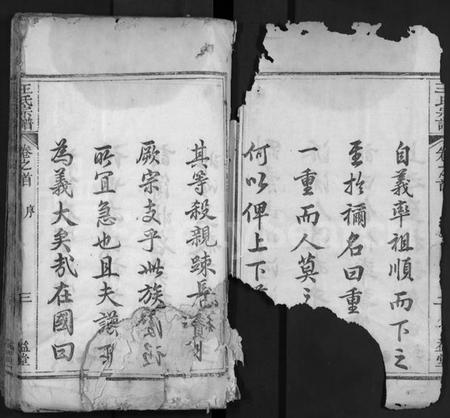 王氏宗譜
卷之首
三
益堂
自義率祖順而下之
至於禰名曰重
一重而人莫之
何以俾上下
王氏宗譜
卷之首 序
三
益堂
其等殺親踈長
厥宗支乎此族譜
所宜急也且夫譜之
為義大矣哉在國曰